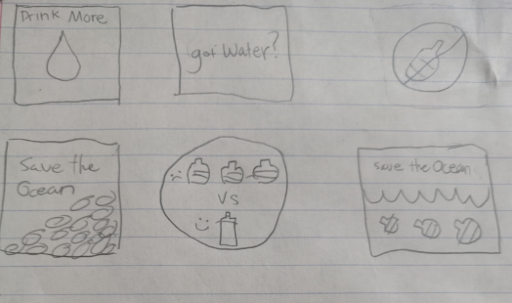 Drink More
got Water?
Save the
Ocean
VS
Save the Ocean